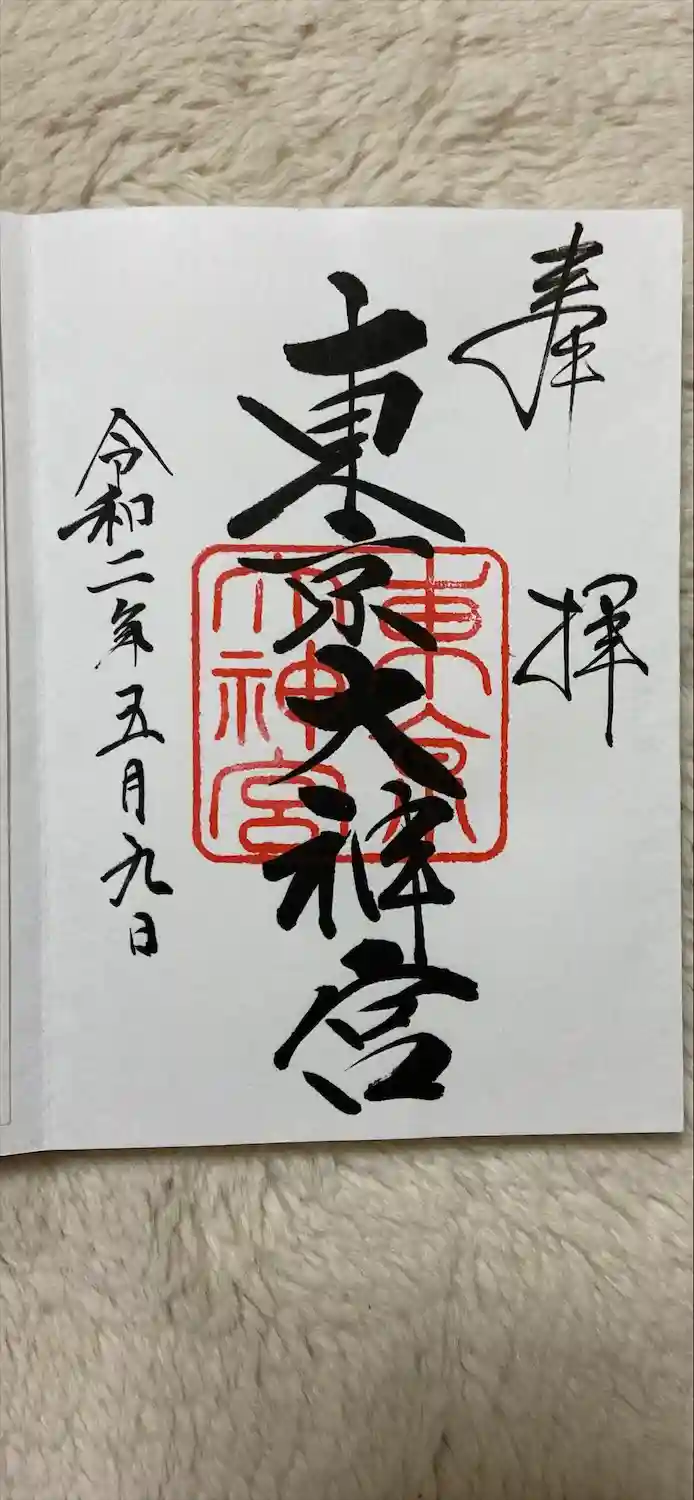 奉拝
東京大神宮
東京大神宮
令和二年五月九日